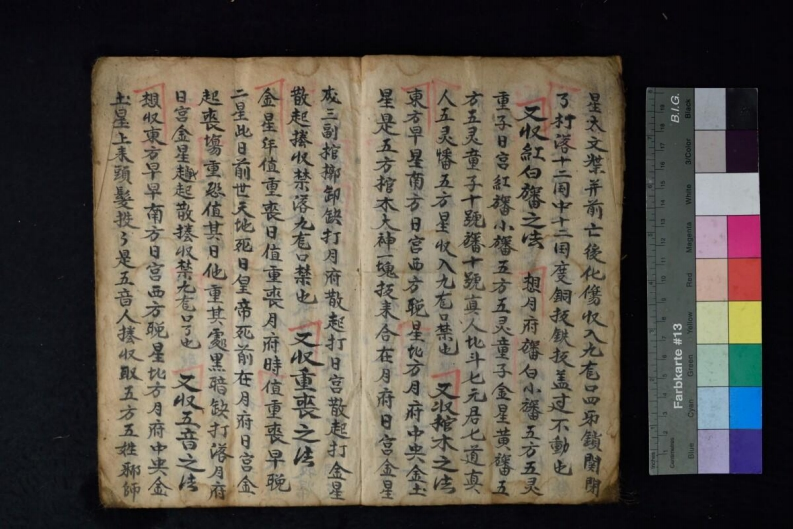 星太文獘并前亡後化傷收入九㐵口四牙鎖関閉
了打落十二囯中十二囯度銅掟鉄掟盖过不動也
又收紅白旛之法　想月府旛白小旛五方五灵
童子日宮紅旛小旛五方五灵童子金星黄旛五
方五灵童子十號旛十號真人北斗七元君七道真
人五灵旛五方星收入九㐵口禁也　又收棺木之法
東方早星南方日宮西方晚星北方月府中央金土
星是五方棺木大神一塊掟耒合在月府日宮金星
成三副棺槨卸缺打月府散起打日宮散起打金星
散起捲收禁落九㐵口禁也　又收重喪之法
金星年值重喪日值重喪月府時值重喪早晚
二星此日前世天地死日皇帝死前在月府日宮金
起喪塲重殁值其日他重其處黑暗缺打落月府
日宮金星起散捲收禁九㐵口了也　又收五音之法
想收東方早早南方日宮西方晚星北方月府中央金
土星上耒頭髮搅々是五音人捲收取五方五姓邪師
B.I.G.
Farbkarte #13
Blue
Cyan
Green
Yellow
Red
Magenta
White
3/Color
Black